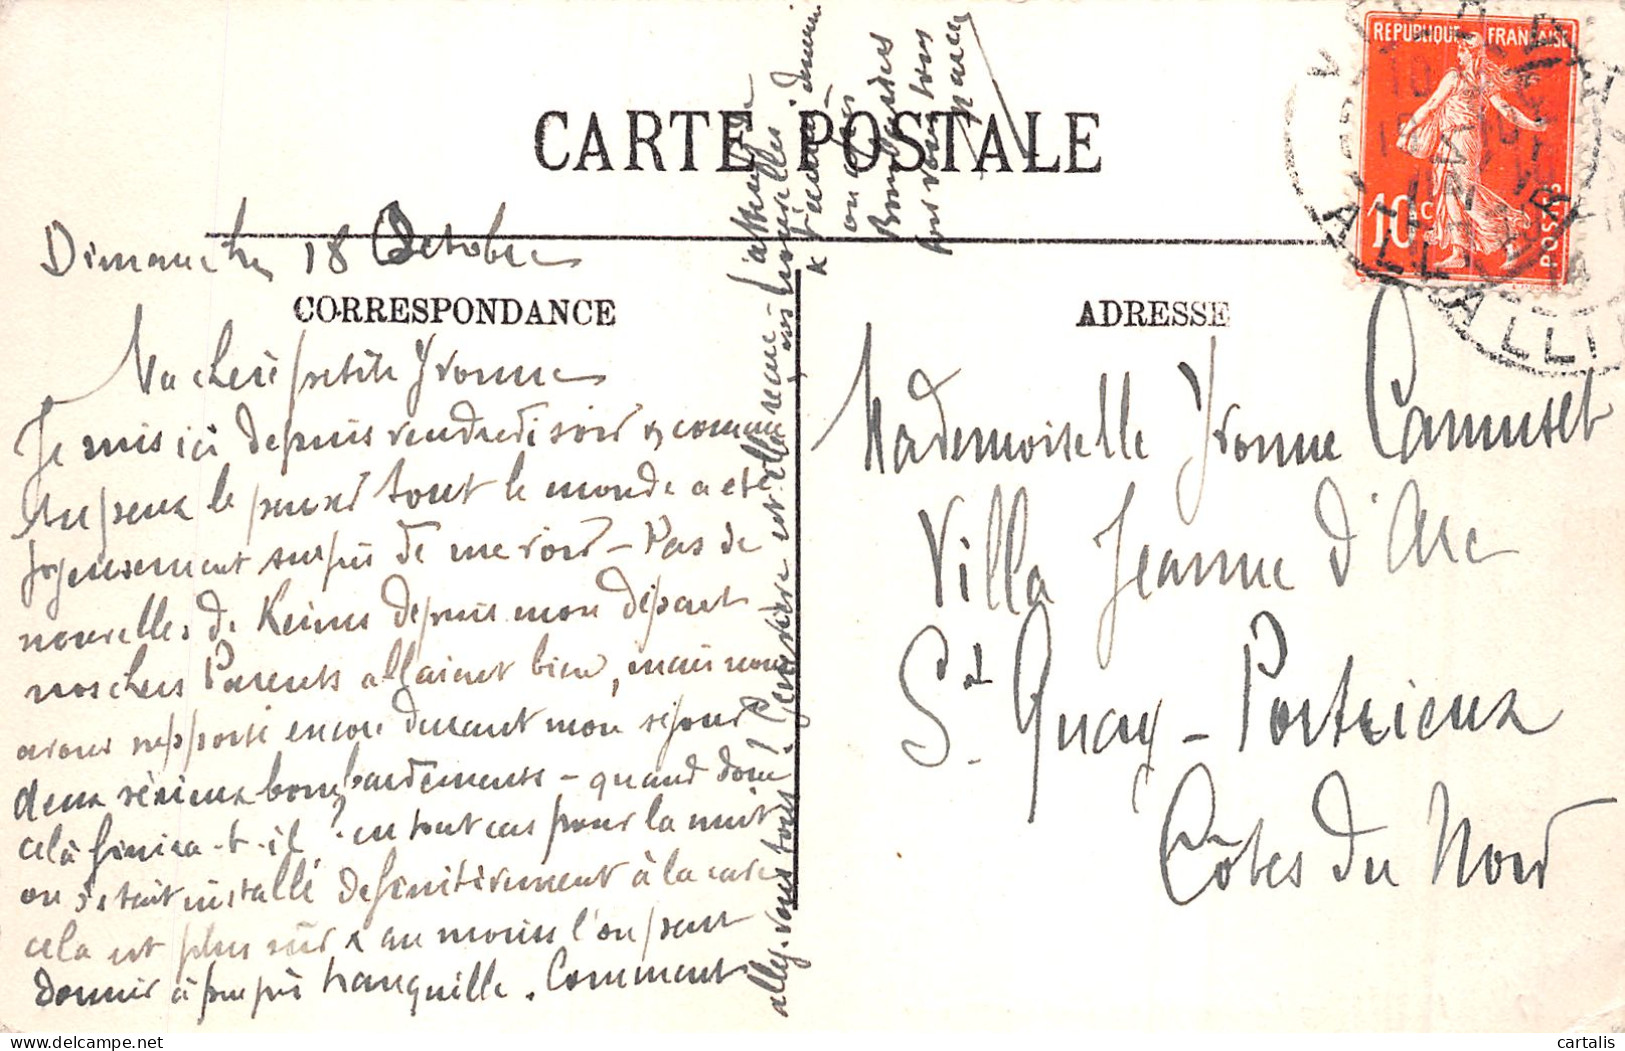 CARTE POSTALE
Dimanche 18 Octobre
CORRESPONDANCE
Ma chère petite Yvonne
Je suis ici depuis vendredi soir & comme
tu peux le penser tout le monde a été
joyeusement surpris de me voir - Pas de
nouvelles de Reims depuis mon départ
nos chers Parents allaient bien, mais nous
avons supporté encore durant mon séjour
deux sérieux bombardements - quand donc
cela finira-t-il? en tout cas pour la nuit
on s'était installé définitivement à la cave
cela est plus sûr & au moins l'on peut
dormir à peu près tranquille. Comment
allez-vous tous? Geneviève est-elle revenue - j'attends
vos nouvelles
&
vous
Bons baisers
pour vous tous
ADRESSE
Mademoiselle Yvonne Camuset
Villa Jeanne d'Arc
St. Quay - Portrieux
Côtes du Nord
REPUBLIQUE FRANÇAISE
10c
POSTES
ALLI
cartalis
delcampe.net